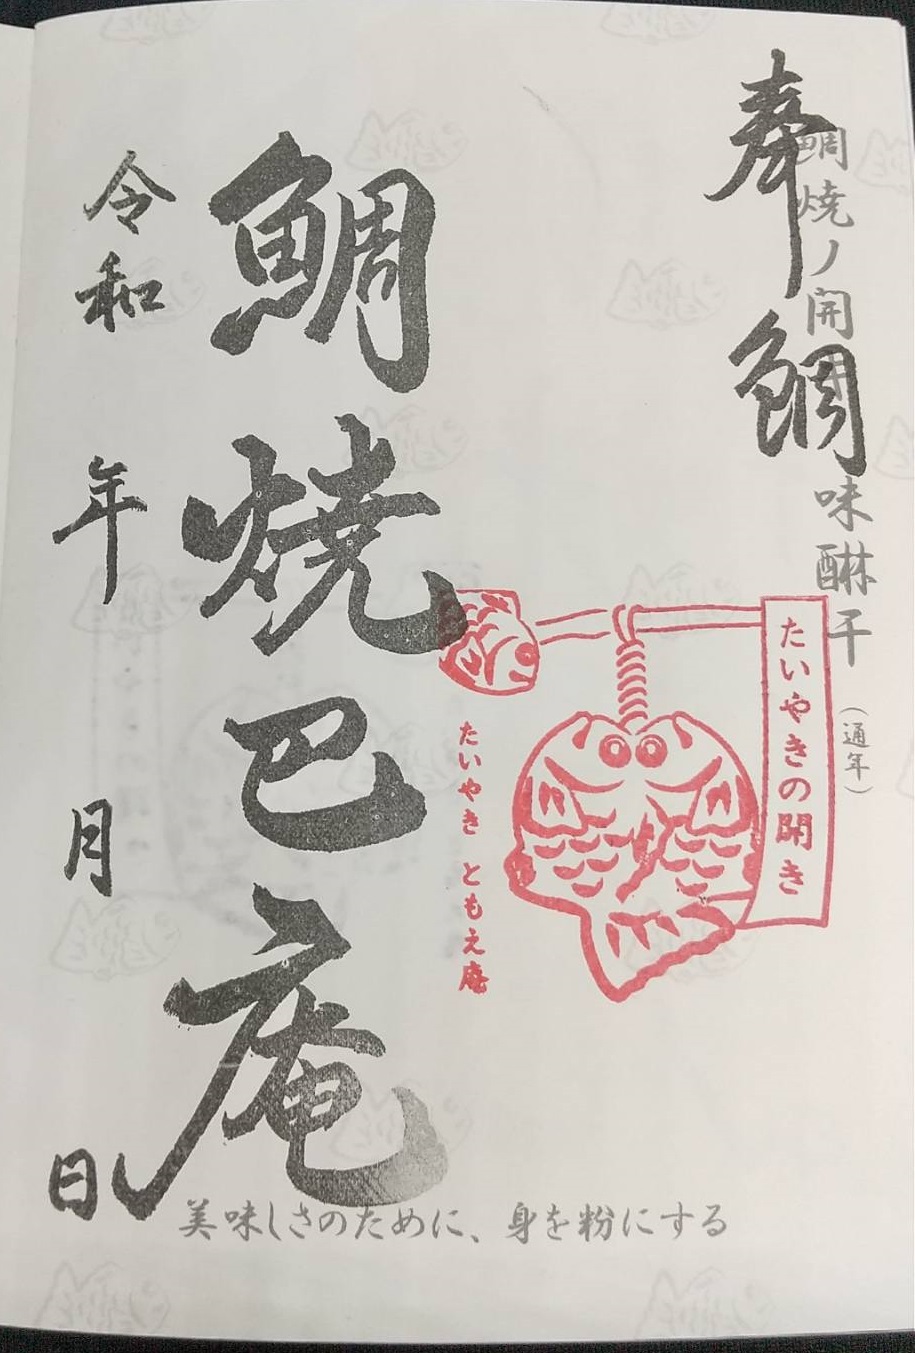 奉鯛
鯛焼ノ開キ 味醂干（通年）
たいやきの開き
たいやき ともえ庵
鯛焼巴庵
令和 年 月 日
美味しさのために、身を粉にする